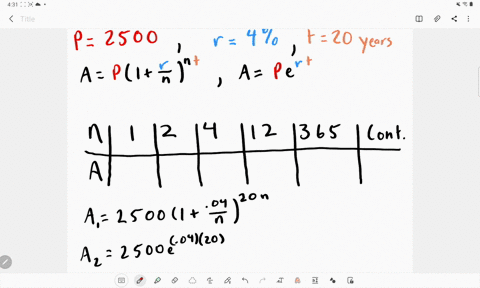 4:31
Title
P = 2500 , r = 4% , t = 20 years
A = P(1 + r/n)^nt , A = Pe^rt
n | 1 | 2 | 4 | 12 | 365 | Cont.
A
A₁ = 2500(1 + .04/n)^20n
A₂ = 2500e^(.04)(20)